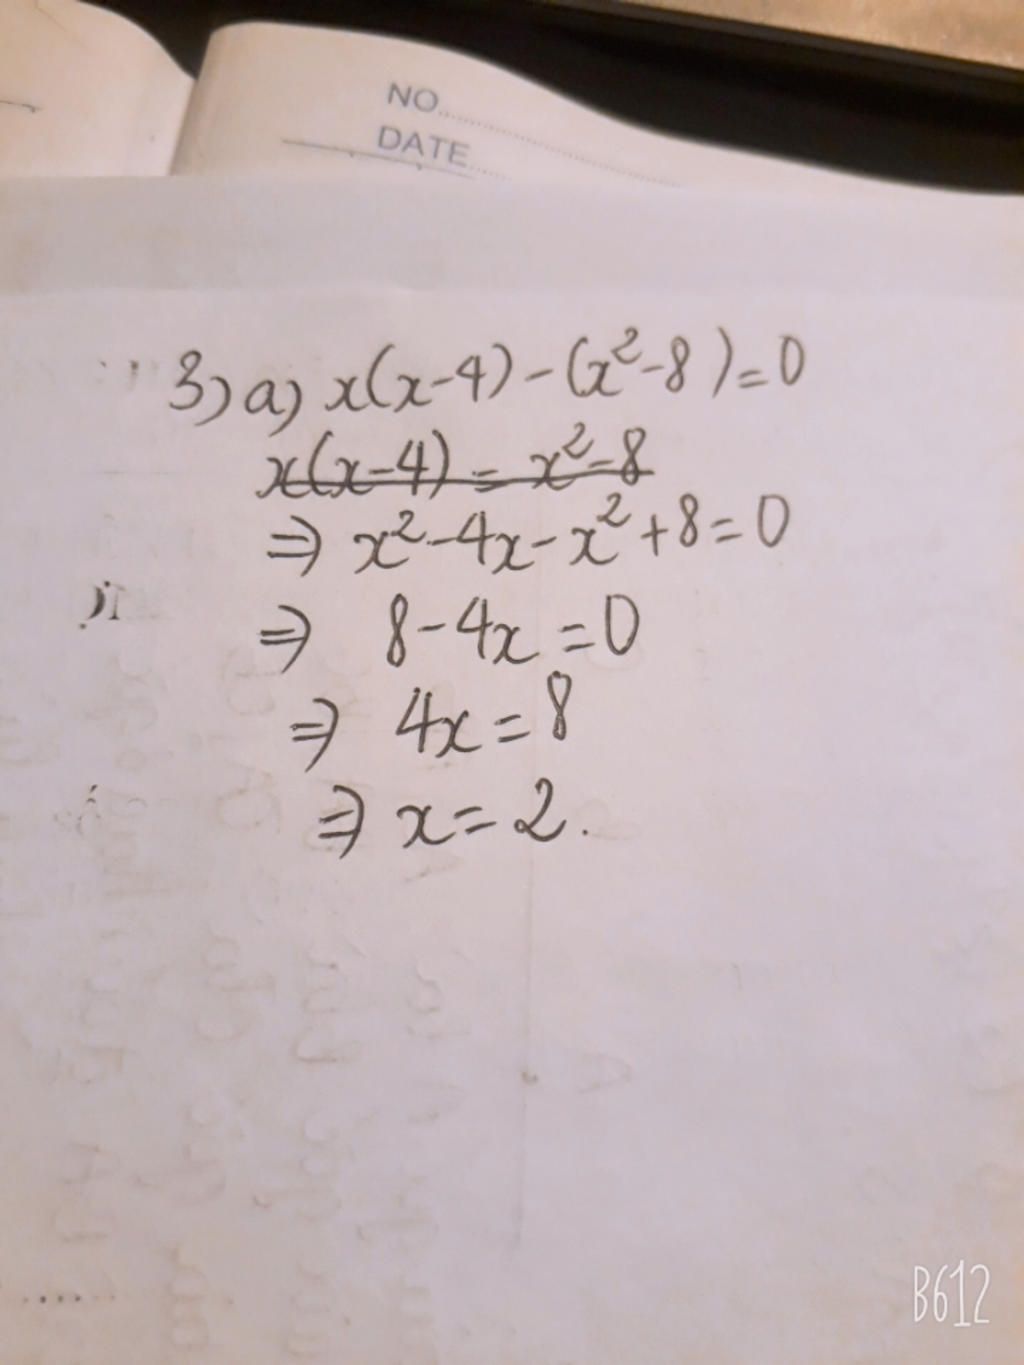 NO
DATE
3) a) x(x-4) - (x²-8) = 0
x(x-4) = x²-8
⇒ x²-4x-x²+8=0
⇒ 8-4x=0
⇒ 4x=8
⇒ x=2.
B612